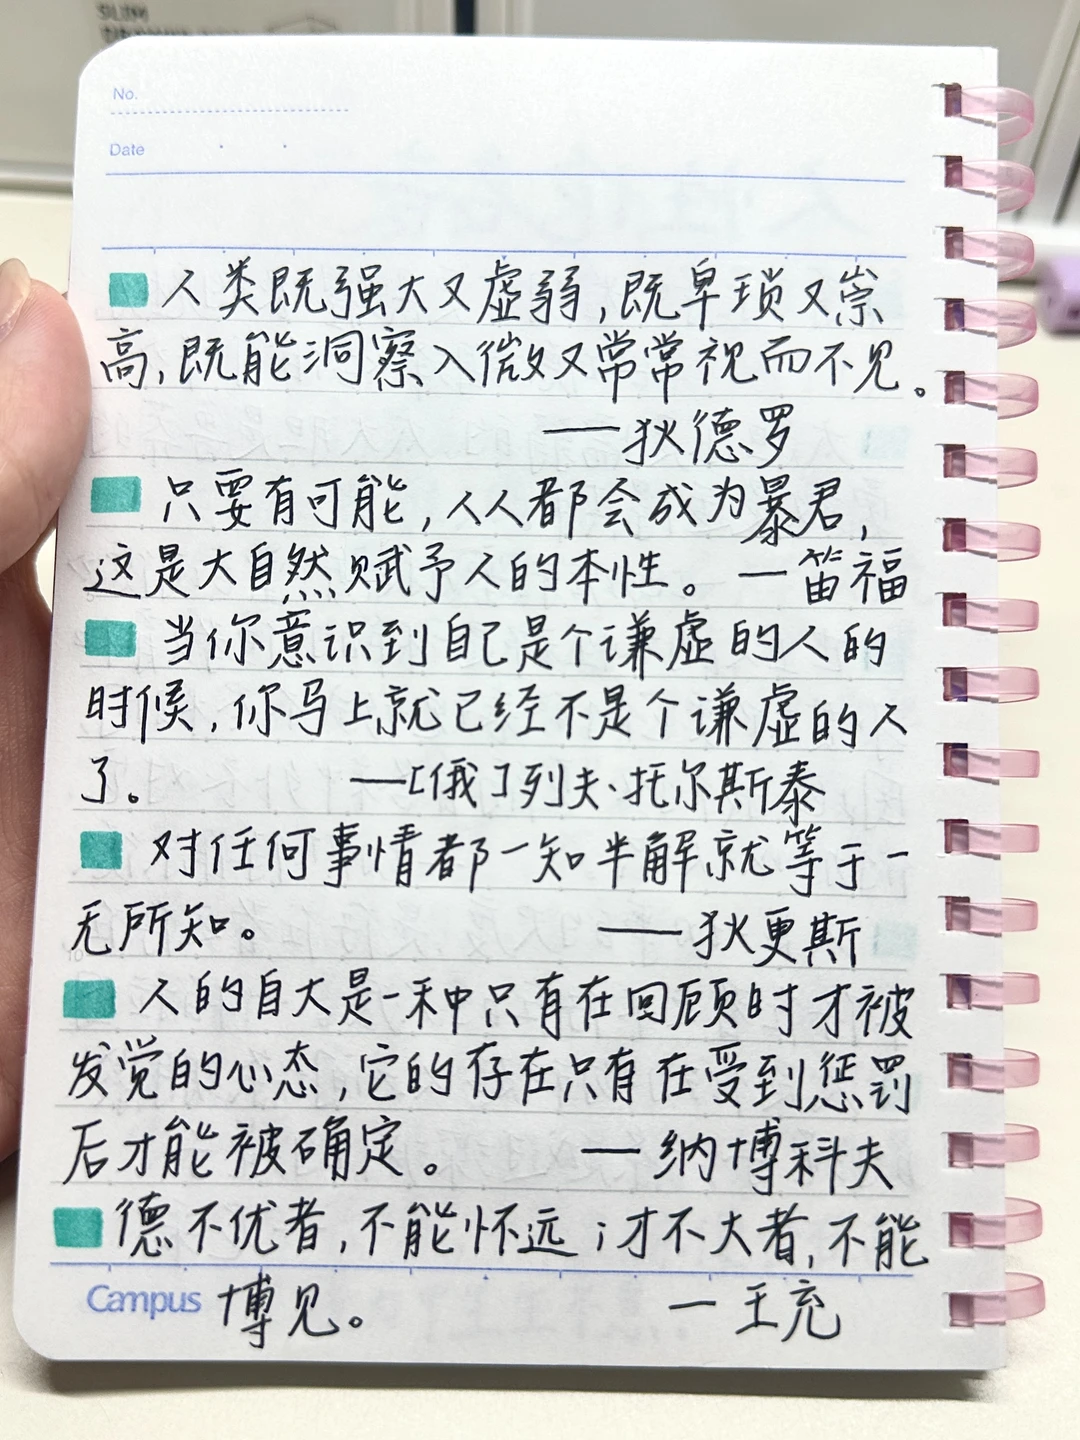 SLIM
No.
Date
人类既强大又虚弱,既卑琐又崇
高,既能洞察入微又常常视而不见。
——狄德罗
只要有可能,人人都会成为暴君,
这是大自然赋予人的本性。—笛福
当你意识到自己是个谦虚的人的
时候,你马上就已经不是个谦虚的人
了。 ——[俄]列夫·托尔斯泰
对任何事情都一知半解就等于一
无所知。 ——狄更斯
人的自大是一种只有在回顾时才被
发觉的心态,它的存在只有在受到惩罚
后才能被确定。 —纳博科夫
德不优者,不能怀远;才不大者,不能
Campus 博见。 —王充